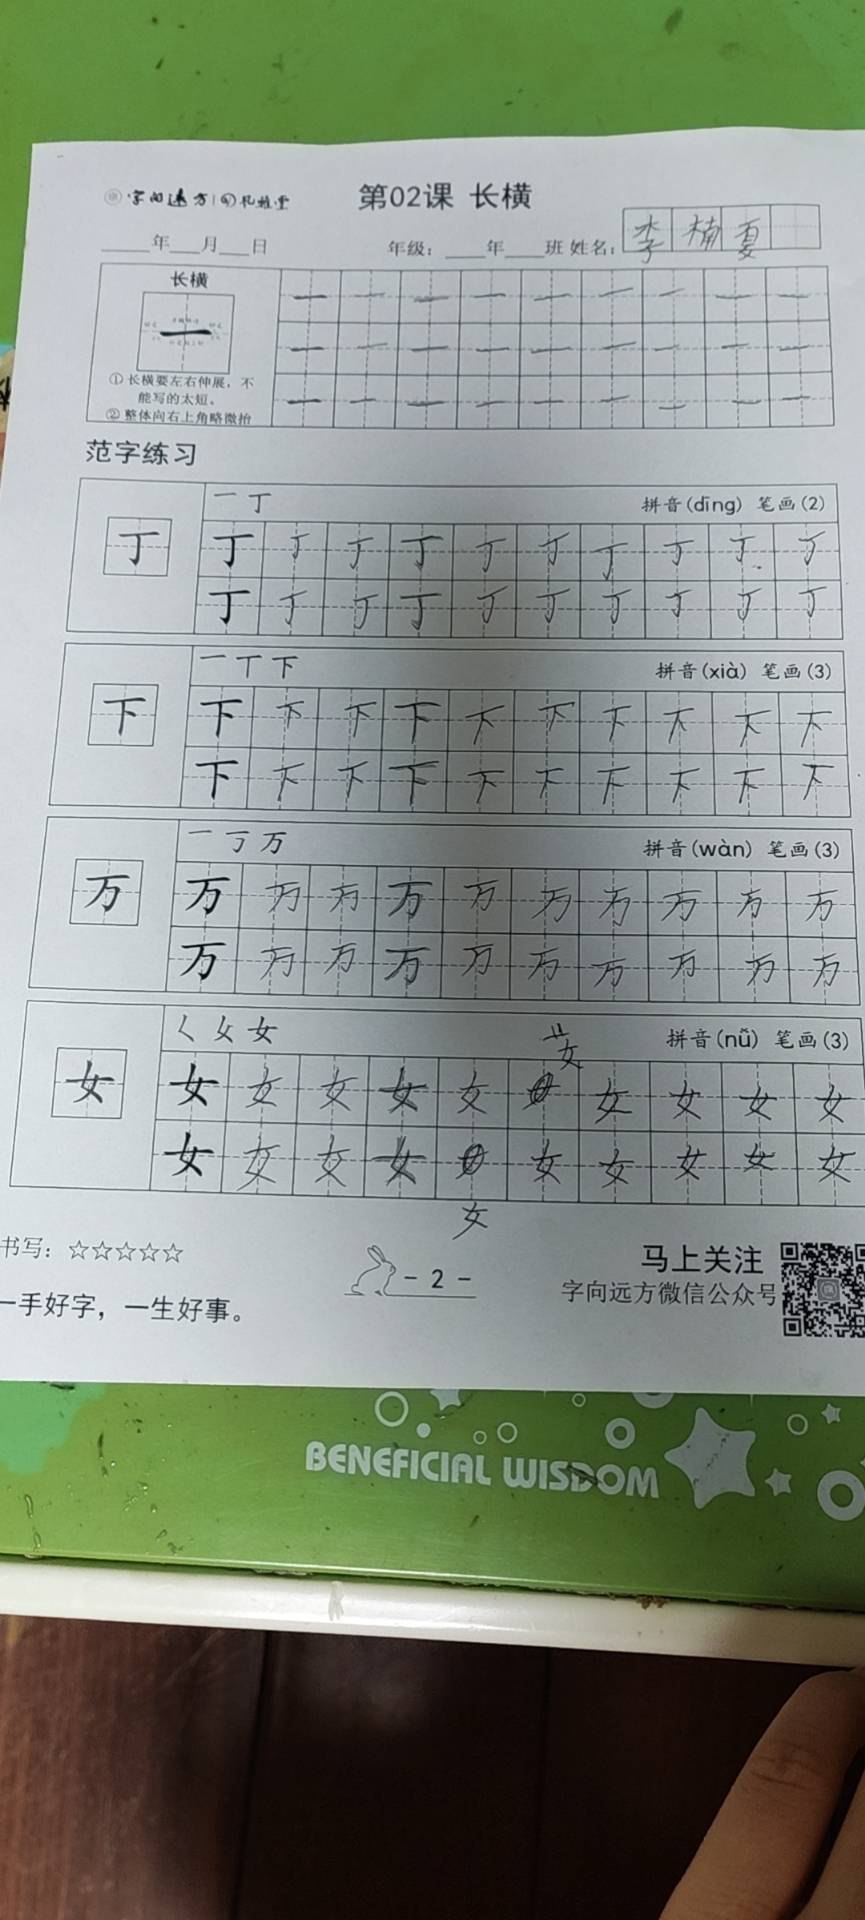 字向远方
第02课 长横
年 月 日 年级： 年 班 姓名： 李楠夏
长横
① 长横要左右伸展，不
能写的太短。
② 整体向右上角略微抬
范字练习
一 丁 拼音(dīng) 笔画(2)
丁 丁 丁 丁 丁 丁 丁 丁 丁 丁 丁
丁 丁 丁 丁 丁 丁 丁 丁 丁 丁
一 丅 下 拼音(xià) 笔画(3)
下 下 下 下 下 下 下 下 下 下 下
下 下 下 下 下 下 下 下 下 下
一 丂 万 拼音(wàn) 笔画(3)
万 万 万 万 万 万 万 万 万 万 万
万 万 万 万 万 万 万 万 万 万
く 女 女 拼音(nǚ) 笔画(3)
女 女 女 女 女 女 女 女 女 女
女 女 女 女 女 女 女 女 女
女
书写：☆☆☆☆☆
- 2 -
马上关注
一手好字，一生好事。
字向远方微信公众号
BENEFICIAL WISDOM